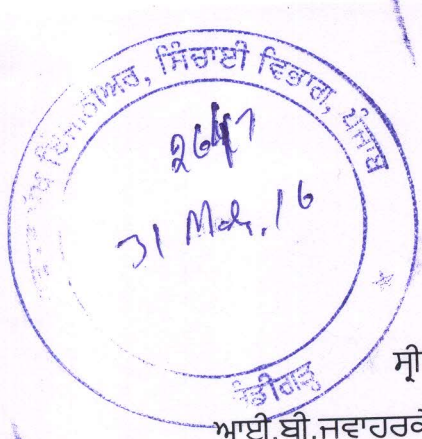 ਇੰਜੀਨੀਅਰ, ਸਿੰਚਾਈ ਵਿਭਾਗ, ਪੰਜਾਬ
31 Mar. 16
ਚੰਡੀਗੜ੍ਹ
ਸ੍ਰੀ
ਆਈ.ਬੀ.ਜਵਾਹਰਕੇ